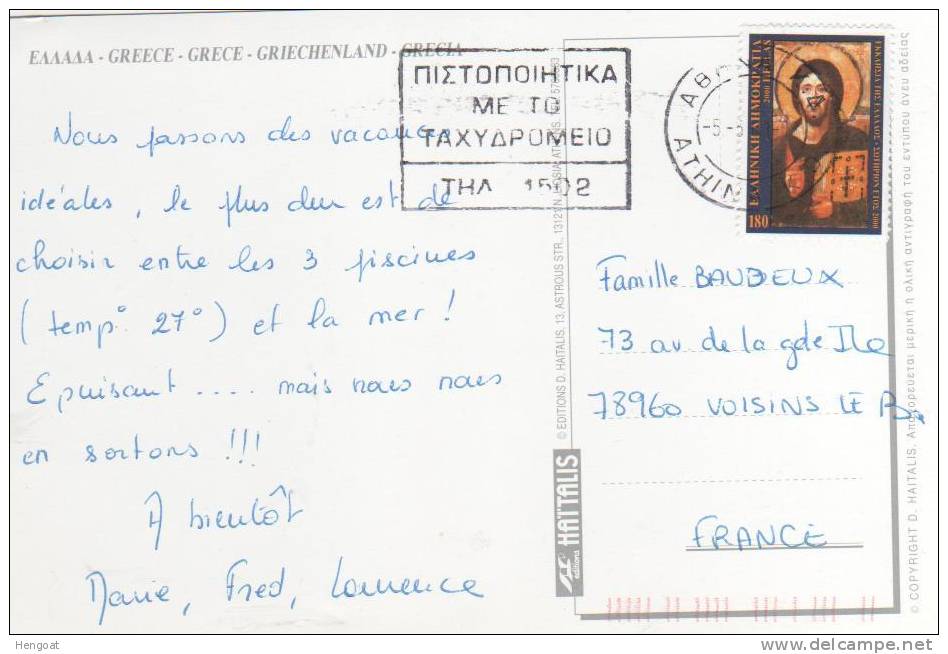 ΕΛΛΑΔΑ - GREECE - GRECE - GRIECHENLAND - GRECIA
ΠΙΣΤΟΠΟΙΗΤΙΚΑ
ΜΕ ΤΟ
ΤΑΧΥΔΡΟΜΕΙΟ
ΤΗΛ 1502
Nous passons des vacances
idéales, le plus dur est de
choisir entre les 3 piscines
(temp° 27°) et la mer !
Epuisant .... mais nous nous
en sortons !!!
A bientôt
Marie, Fred, Laurence
© EDITIONS D. HAITALIS, 13, ASTROUS STR., 13121
HAÏTALIS
editions
ΕΛΛΗΝΙΚΗ ΔΗΜΟΚΡΑΤΙΑ
2000 HELLAS
180
ATHIN
Famille BAUDEUX
73 av de la gde Ile
78960 VOISINS LE B
FRANCE
© COPYRIGHT D. HAITALIS. Απαγορεύεται μερική η ολική αντιγραφή του εντύπου άνευ αδείας
Hengoat
delcampe.net